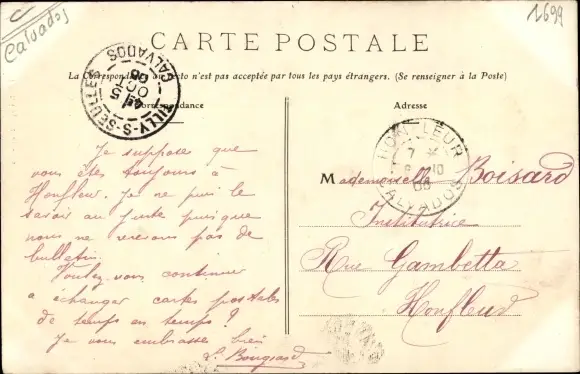 Calvados
1699
CARTE POSTALE
La Correspondance au recto n'est pas acceptée par tous les pays étrangers. (Se renseigner à la Poste)
Correspondance
Adresse
TILLY-S-SEULLES
CALVADOS
5 OCT
HONFLEUR
CALVADOS
Je suppose que
vous êtes toujours à
Honfleur. Je ne puis le
savoir au juste puisque
nous ne recevons pas de
bulletin.
Voulez-vous continuer
à échanger cartes postales
de temps en temps ?
Je vous embrasse bien
Mademoiselle Boisard
Institutrice
Rue Gambetta
Honfleur